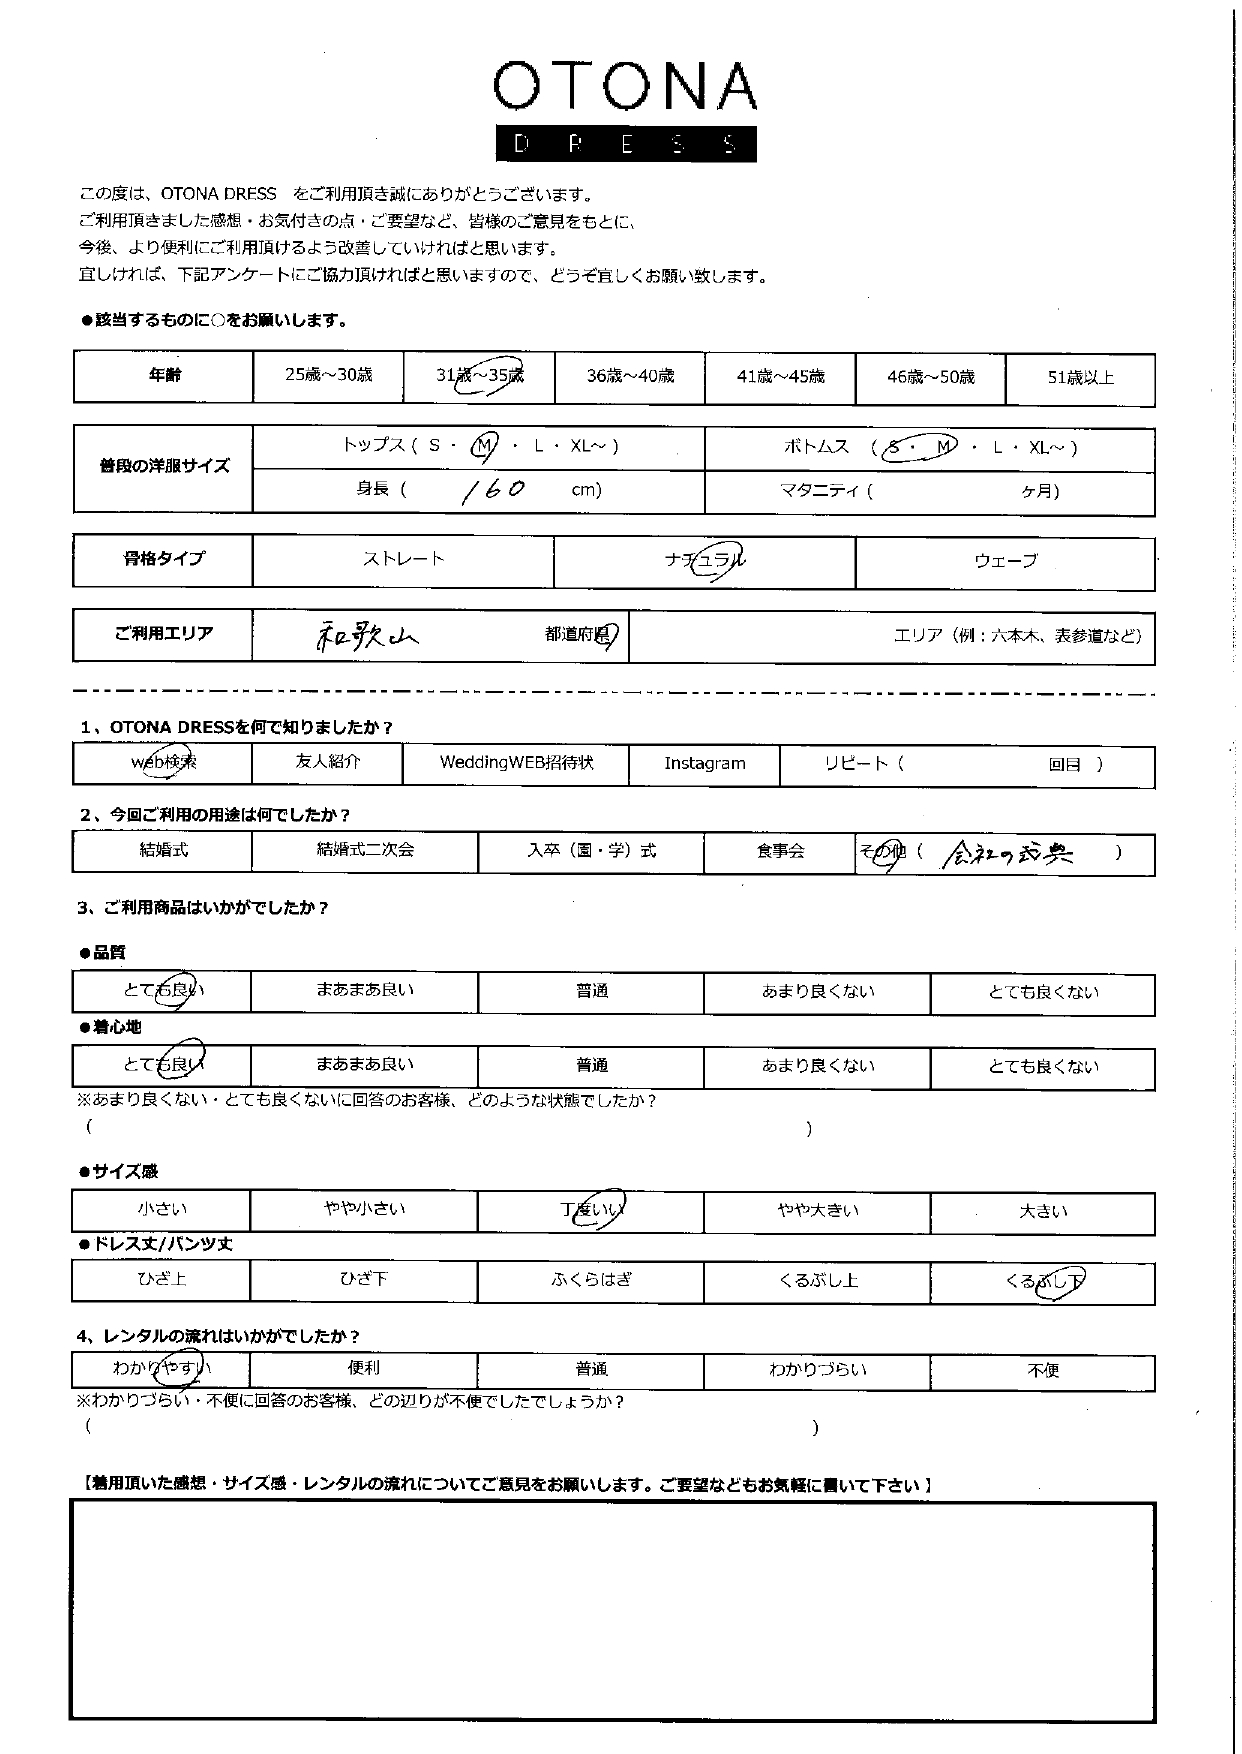 OTONA
DRESS
この度は、OTONA DRESS　をご利用頂き誠にありがとうございます。
ご利用頂きました感想・お気付きの点・ご要望など、皆様のご意見をもとに、
今後、より便利にご利用頂けるよう改善していければと思います。
宜しければ、下記アンケートにご協力頂ければと思いますので、どうぞ宜しくお願い致します。
●該当するものに○をお願いします。
年齢 25歳～30歳 31歳～35歳 36歳～40歳 41歳～45歳 46歳～50歳 51歳以上
普段の洋服サイズ トップス ( S ・ M ・ L ・ XL～ ) ボトムス ( S ・ M ・ L ・ XL～ )
身長 ( 160 cm) マタニティ ( ヶ月)
骨格タイプ ストレート ナチュラル ウェーブ
ご利用エリア 和歌山 都道府県 エリア（例：六本木、表参道など）
1、OTONA DRESSを何で知りましたか？
web検索 友人紹介 WeddingWEB招待状 Instagram リピート ( 回目 )
2、今回ご利用の用途は何でしたか？
結婚式 結婚式二次会 入卒（園・学）式 食事会 その他 ( 会社の式典 )
3、ご利用商品はいかがでしたか？
●品質
とても良い まあまあ良い 普通 あまり良くない とても良くない
●着心地
とても良い まあまあ良い 普通 あまり良くない とても良くない
※あまり良くない・とても良くないに回答のお客様、どのような状態でしたか？
( )
●サイズ感
小さい やや小さい 丁度いい やや大きい 大きい
●ドレス丈/パンツ丈
ひざ上 ひざ下 ふくらはぎ くるぶし上 くるぶし下
4、レンタルの流れはいかがでしたか？
わかりやすい 便利 普通 わかりづらい 不便
※わかりづらい・不便に回答のお客様、どの辺りが不便でしたでしょうか？
( )
【着用頂いた感想・サイズ感・レンタルの流れについてご意見をお願いします。ご要望などもお気軽に書いて下さい】